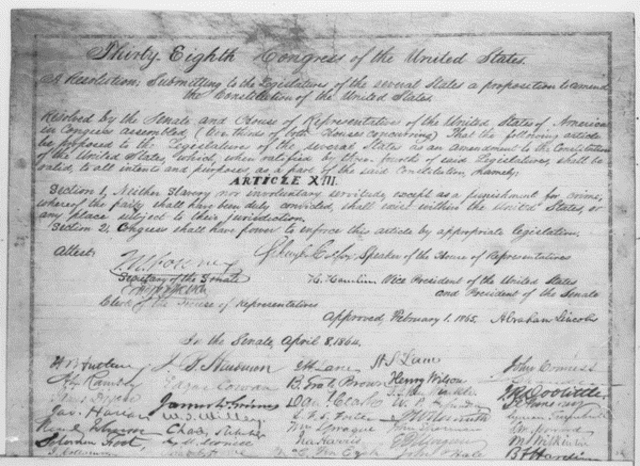 Thirty-Eighth Congress of the United States.
A Resolution; Submitting to the Legislatures of the several States a proposition to amend
the Constitution of the United States.
Resolved by the Senate and House of Representatives of the United States of America
in Congress assembled, (two thirds of both Houses concurring) That the following article
be proposed to the Legislatures of the several States as an amendment to the Constitution
of the United States, which, when ratified by three-fourths of said Legislatures, shall be
valid, to all intents and purposes, as a part of the said Constitution, namely:
ARTICLE XIII.
Section 1, Neither slavery nor involuntary servitude, except as a punishment for crime,
whereof the party shall have been duly convicted, shall exist within the United States, or
any place subject to their jurisdiction.
Section 2, Congress shall have power to enforce this article by appropriate legislation.
Attest:
Schuyler Colfax, Speaker of the House of Representatives
J. W. Forney
Secretary of the Senate
H. Hamlin Vice President of the United States
and President of the Senate
Clerk of the House of Representatives
Approved, February 1, 1865. Abraham Lincoln
In the Senate, April 8, 1864.
J. B. Henderson
H S Lane
John Conness
Edgar Cowan
B. Gratz Brown
Henry Wilson
J. R. Doolittle
James W. Grimes
Jas. Harlan
Chas. Sumner
Wm Sprague
Solomon Foot
Ira Harris
John P Hale
M S Wilkinson